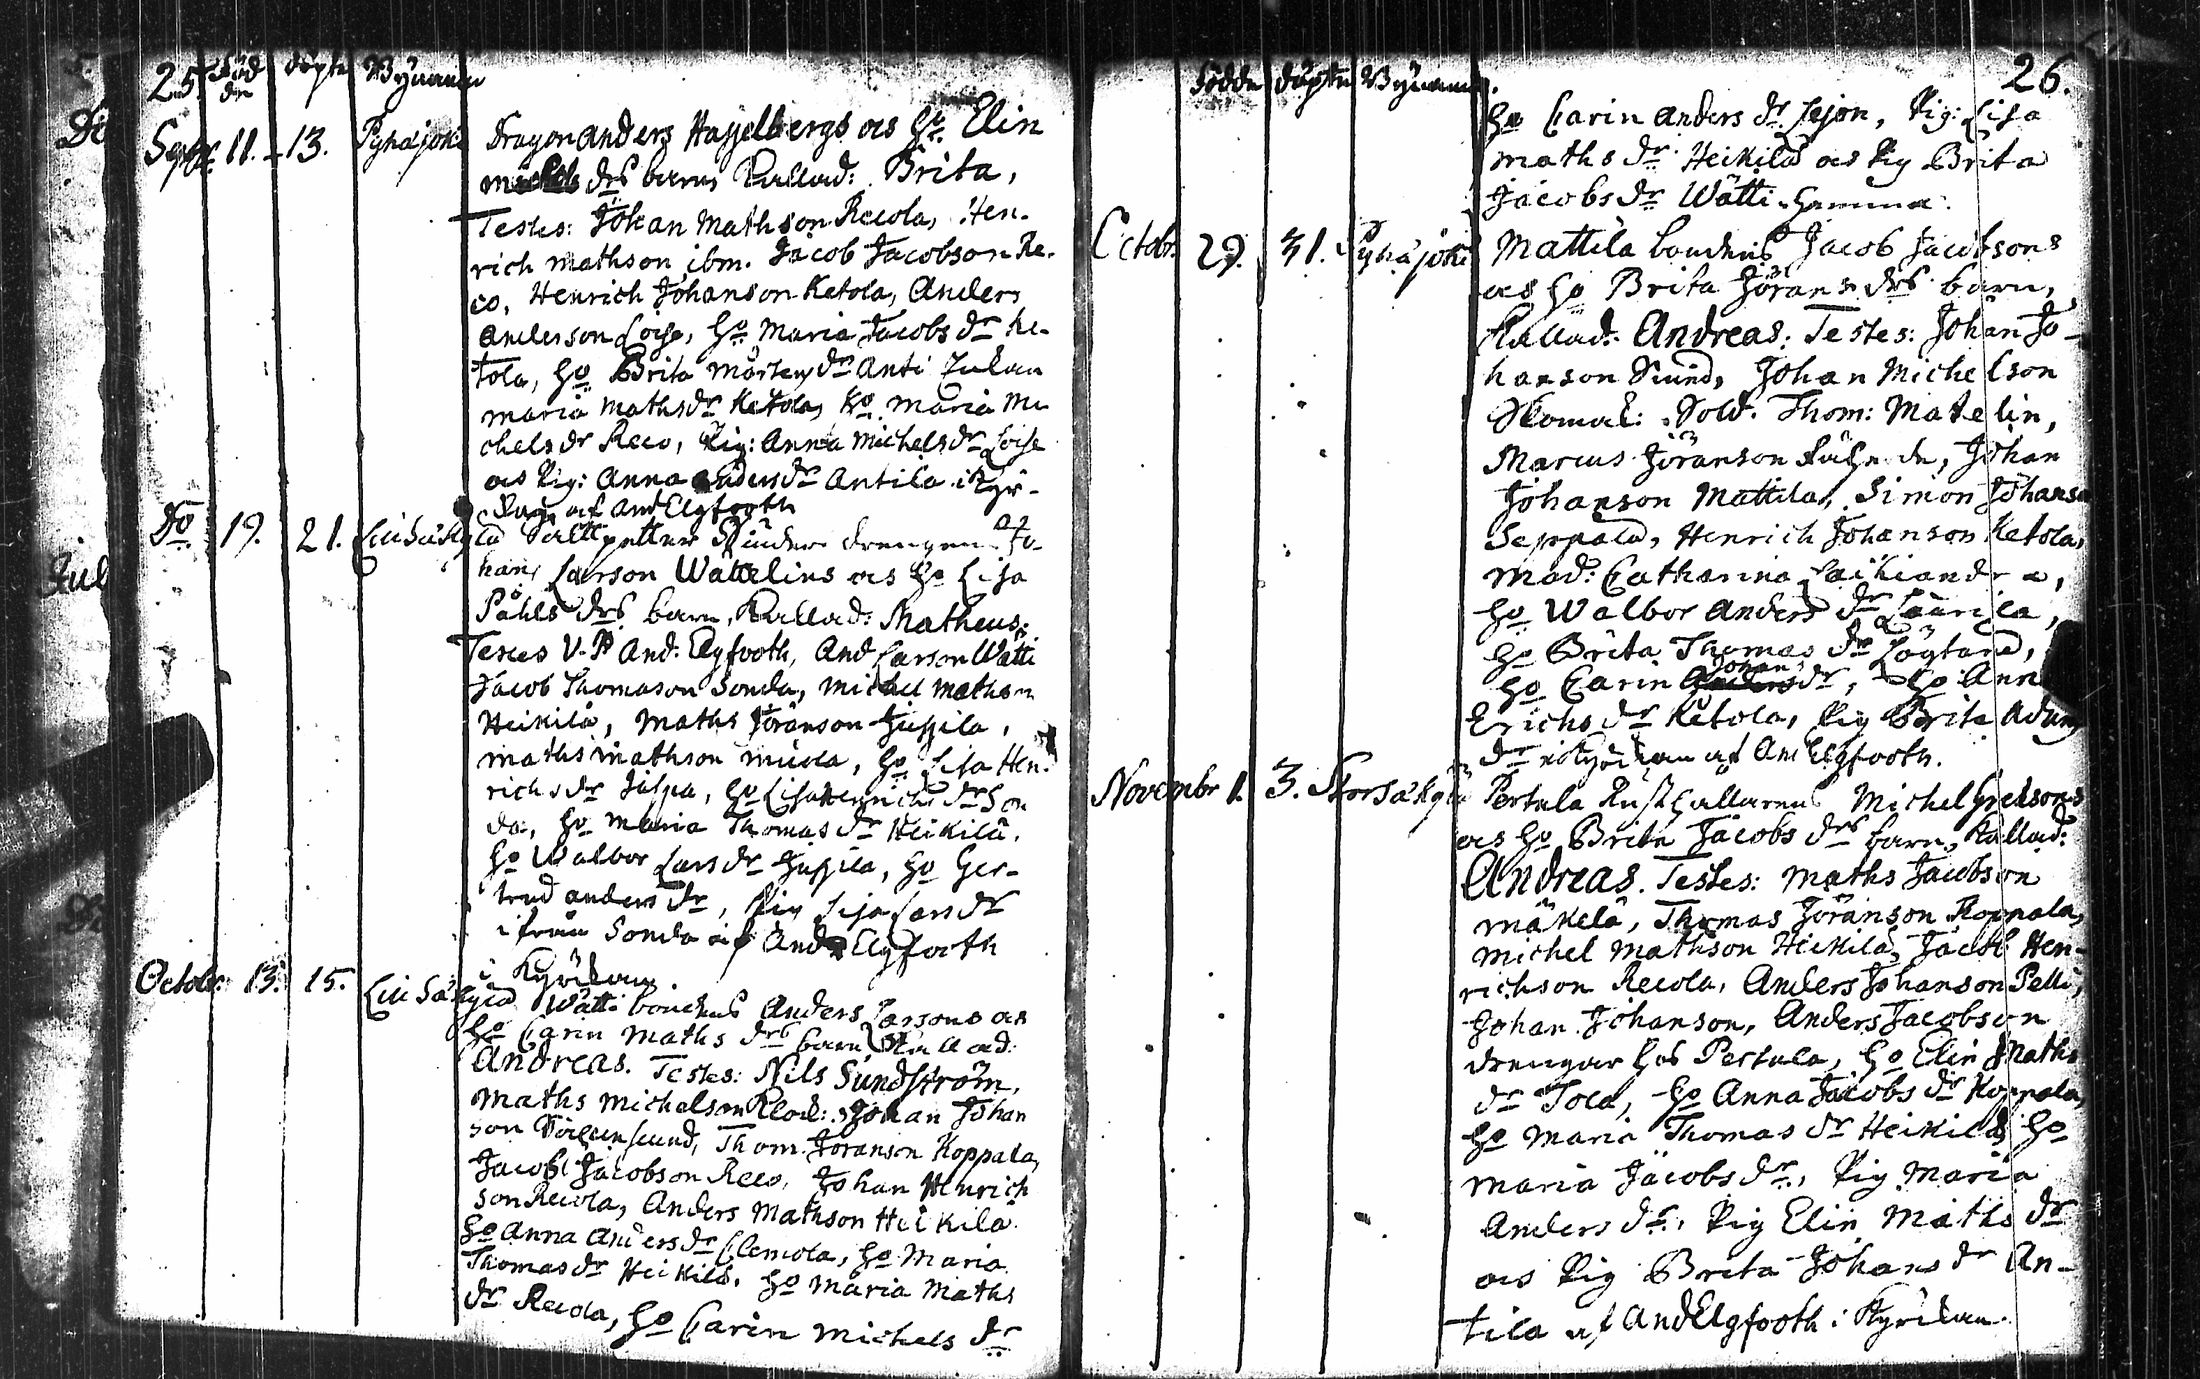 25. Född den döpte Bÿnamn
Septbr. 11. 13. Pÿhäjoki Dragon Anders Hasselbergs och ho Elin
drs barn, kallad: Brita,
Testes: Johan Mathson Recola, Hen-
rich Mathson ibm. Jacob Jacobson Re-
co, Henrich Johanson Ketola, Anders
Anderson Loise, ho Maria Jacobs dr Ke-
tola, ho Brita Mårtens dr Anti
Maria Mathsdr Ketola, ho Maria Mi-
chels dr Reco, Pig: Anna Michels dr Loise
och Pig: Anna Andersdr Antila i Kÿr-
kan af And Elgfooth
Do 19. 21. Liusåkÿlä drengen Jo-
hans Larson Wättelins och ho Lisa
Påhls drs barn, Kallad: Matheus.
Testes V. P And. Elgfooth, And Larson Wätti
Jacob Thomason Sonda, Michel Mathson
Heikilä, Maths Jöranson Jussila,
Maths Mathson ho Lisa Hen-
richs dr Jaspa, ho Lisa Henrichs dr Son
da, ho Maria Thomas dr Heikilä,
ho Walbor Lars dr Jussila, ho Ger-
trud Anders dr, Pig Lisa Lars dr
ifrån Sonda af And Elgfooth
i Kyrkan
Octobr. 13. 15. Liusåkÿlä Wätti bondens Anders Larsons och
ho Carin Maths drs barn, Kallad:
Andreas. Testes: Nils Sundström,
Maths Michelson Klock: Johan Johan
son Thom Jöranson Koppala,
Jacob Jacobson Reco, Johan Henrich
son Recola, Anders Mathson Heikilä
ho Anna Anders dr Clemola, ho Maria
Thomas dr Heikilä, ho Maria Maths
dr Recola, ho Carin Michels dr
26.
Födde döpte Bÿnamn.
ho Carin Anders dr Lejon, Pig: Lisa
Maths dr Heikilä och Pig Brita
Jacobs dr Wätti hemma.
Octobr. 29. 31. Pÿhäjoki Mattila bondens Jacob Jacobsons
och ho Brita Jörans drs barn,
Kallad: Andreas: Testes: Johan Jo-
hanson Sund, Johan Michelson
Skomak: Sold. Thom: Matelin,
Marcus Jöranson Johan
Johanson Mattila, Simon Johanson
Seppälä, Henrich Johanson Ketola,
Mad: Catharina
ho Walbor Anders dr Laurila,
ho Brita Thomas dr
ho Carin Johans dr, ho Anna
Erichs dr Ketola, Pig Brita Adams
dr i Kyrkan af And Elgfooth.
Novembr 1. 3. Storsåkÿlä Pertula Rusthållarens Michel Grelsons
och ho Brita Jacobs drs barn, Kallad:
Andreas. Testes: Maths Jacobson
Mäkelä, Thomas Jöranson Koppala,
Michel Mathson Heikilä, Jacob Hen-
richson Recola, Anders Johanson Pelli,
Johan Johanson, Anders Jacobson
drengar hos Pertula, ho Elin Maths
dr Tola, ho Anna Jacobs dr Koppala,
ho Maria Thomas dr Heikilä, ho
Maria Jacobs dr, Pig Maria
Anders dr, Pig Elin Maths dr
och Pig Brita Johans dr An-
tila af And Elgfooth i Kyrkan.